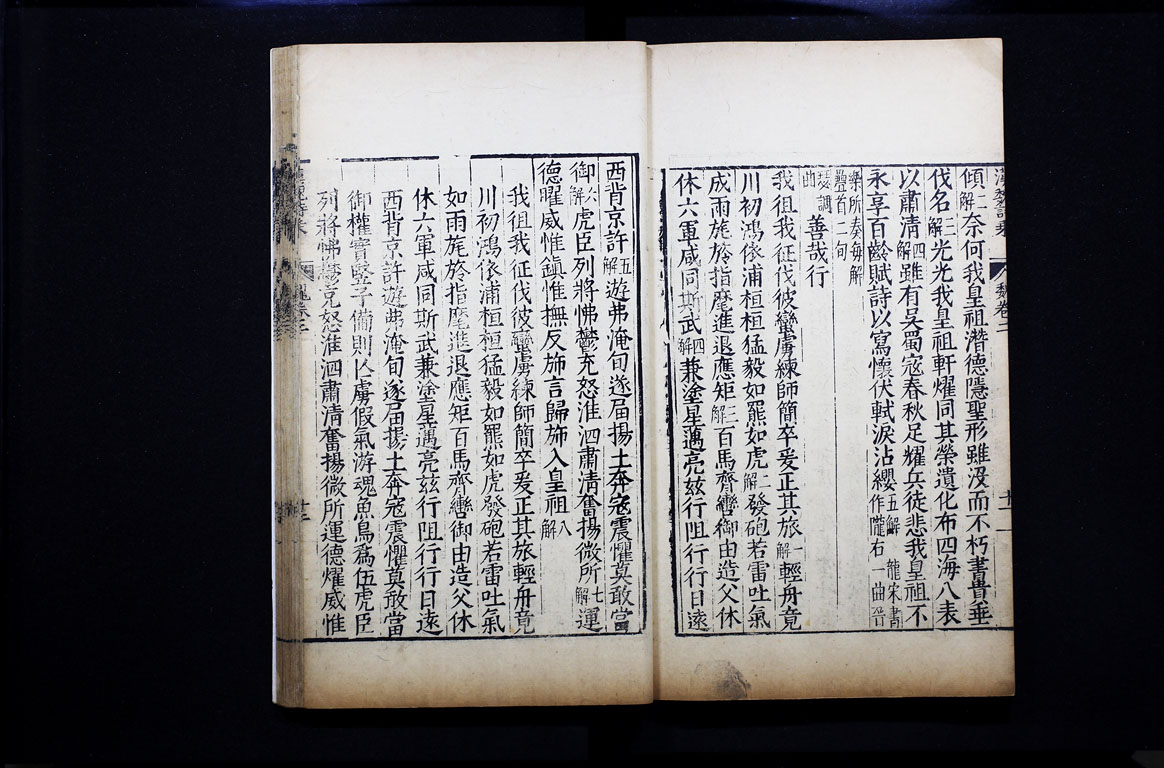 魏卷二
十一
傾二解奈何我皇祖潛德隱聖形雖沒而不朽書貴垂
伐名三解光光我皇祖軒耀同其榮遺化布四海八表
以肅清四解雖有吳蜀寇春秋足耀兵徒悲我皇祖不
永享百齡賦詩以寫懷伏軾淚沾纓五解 宋書作隴右一曲晉
樂所奏每解
疊首二句
善哉行
瑟調
曲
我徂我征伐彼蠻虜練師簡卒爰正其旅一解輕舟竟
川初鴻依浦桓桓猛毅如羆如虎二解發砲若雷吐氣
成雨旄旍指麾進退應矩三解百馬齊轡御由造父休
休六軍咸同斯武四解兼塗星邁亮茲行阻行行日遠
西背京許五解遊弗淹旬遂届揚土奔寇震懼莫敢當
御六解虎臣列將怫鬱充怒淮泗肅清奮揚微所七解運
德曜威惟鎮惟撫反斾言歸斾入皇祖八解
我徂我征伐彼蠻虜練師簡卒爰正其旅輕舟竟
川初鴻依浦桓桓猛毅如羆如虎發砲若雷吐氣
如雨旄旍指麾進退應矩百馬齊轡御由造父休
休六軍咸同斯武兼塗星邁亮茲行阻行行日遠
西背京許遊弗淹旬遂届揚土奔寇震懼莫敢當
御權實豎子備則亾虜假氣游魂魚鳥爲伍虎臣
列將怫鬱充怒淮泗肅清奮揚微所運德耀威惟